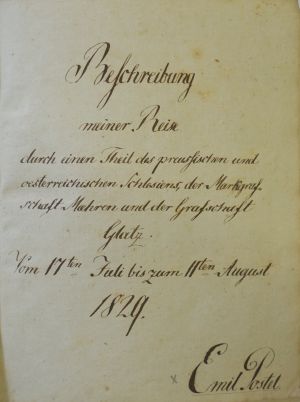 Beschreibung
meiner Reise
durch einen Theil des preussischen und
oesterreichischen Schlesiens, der Markgraf-
schaft Maehren und der Grafschaft
Glatz.
Vom 17ten Juli bis zum 11ten August
1829.
Emil Postel.